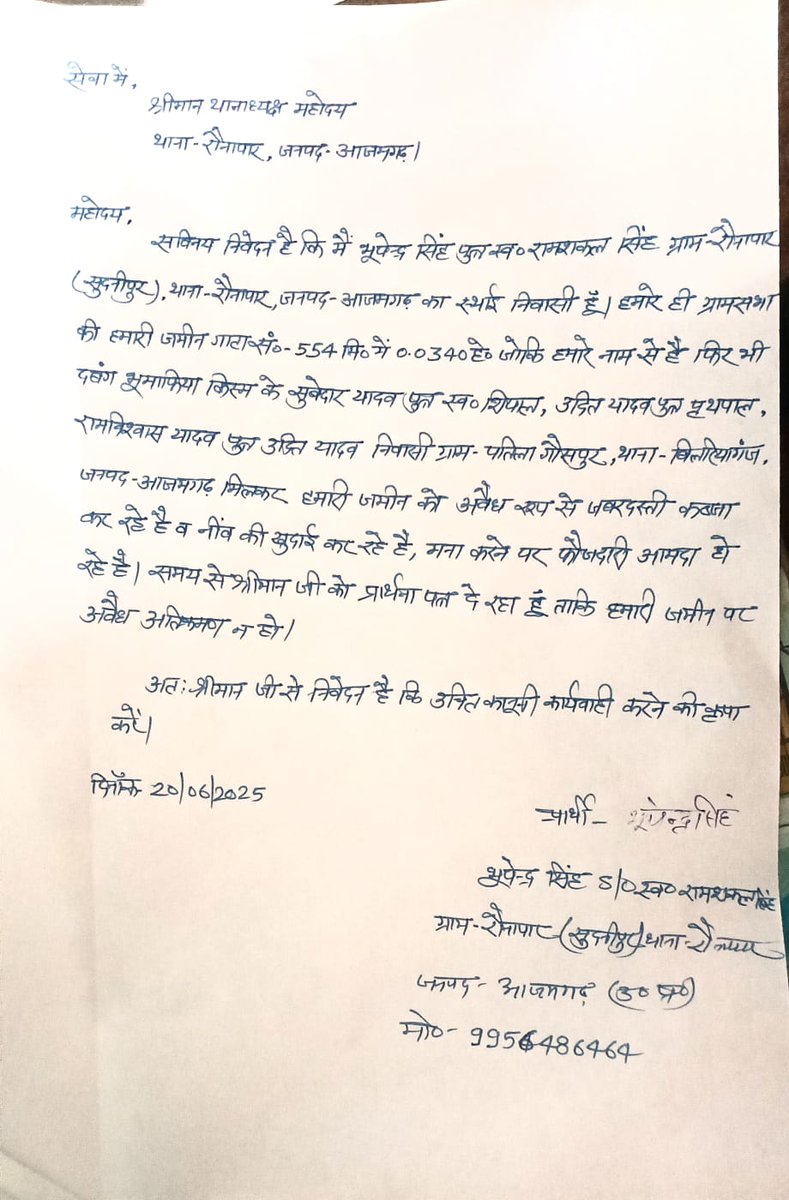 सेवा में,
श्रीमान थानाध्यक्ष महोदय
थाना-रौनापार, जनपद-आजमगढ़।
महोदय,
सविनय निवेदन है कि मैं भूपेन्द्र सिंह पुत्र स्व० रामशकल सिंह ग्राम-रौनापार
(सुदनीपुर), थाना-रौनापार, जनपद-आजमगढ़ का स्थाई निवासी हूँ। हमारे ही ग्रामसभा
की हमारी जमीन गाटा सं०-554 मि० में 0.0340 हे० जोकि हमारे नाम से है फिर भी
दबंग भूमाफिया किस्म के सुबेदार यादव पुत्र स्व० शिपाल, उदित यादव पुत्र पृथपाल,
रामविश्वास यादव पुत्र उदित यादव निवासी ग्राम-पतिला गौसपुर, थाना-बिलरियागंज,
जनपद-आजमगढ़ मिलकर हमारी जमीन को अवैध रूप से जबरदस्ती कब्जा
कर रहे है व नींव की खुदाई कर रहे है, मना करने पर फौजदारी आमदा हो
रहे है। समय से श्रीमान जी को प्रार्थना पत्र दे रहा हूं ताकि हमारी जमीन पर
अवैध अतिक्रमण न हो।
अतः श्रीमान जी से निवेदन है कि उचित कानूनी कार्यवाही करने की कृपा
करें।
दिनाँक 20/06/2025
प्रार्थी- भूपेन्द्र सिंह
भूपेन्द्र सिंह S/O स्व० रामशकल सिंह
ग्राम-रौनापार (सुदनीपुर) थाना-रौनापार
जनपद-आजमगढ़ (उ० प्र०)
मो०-9956486464